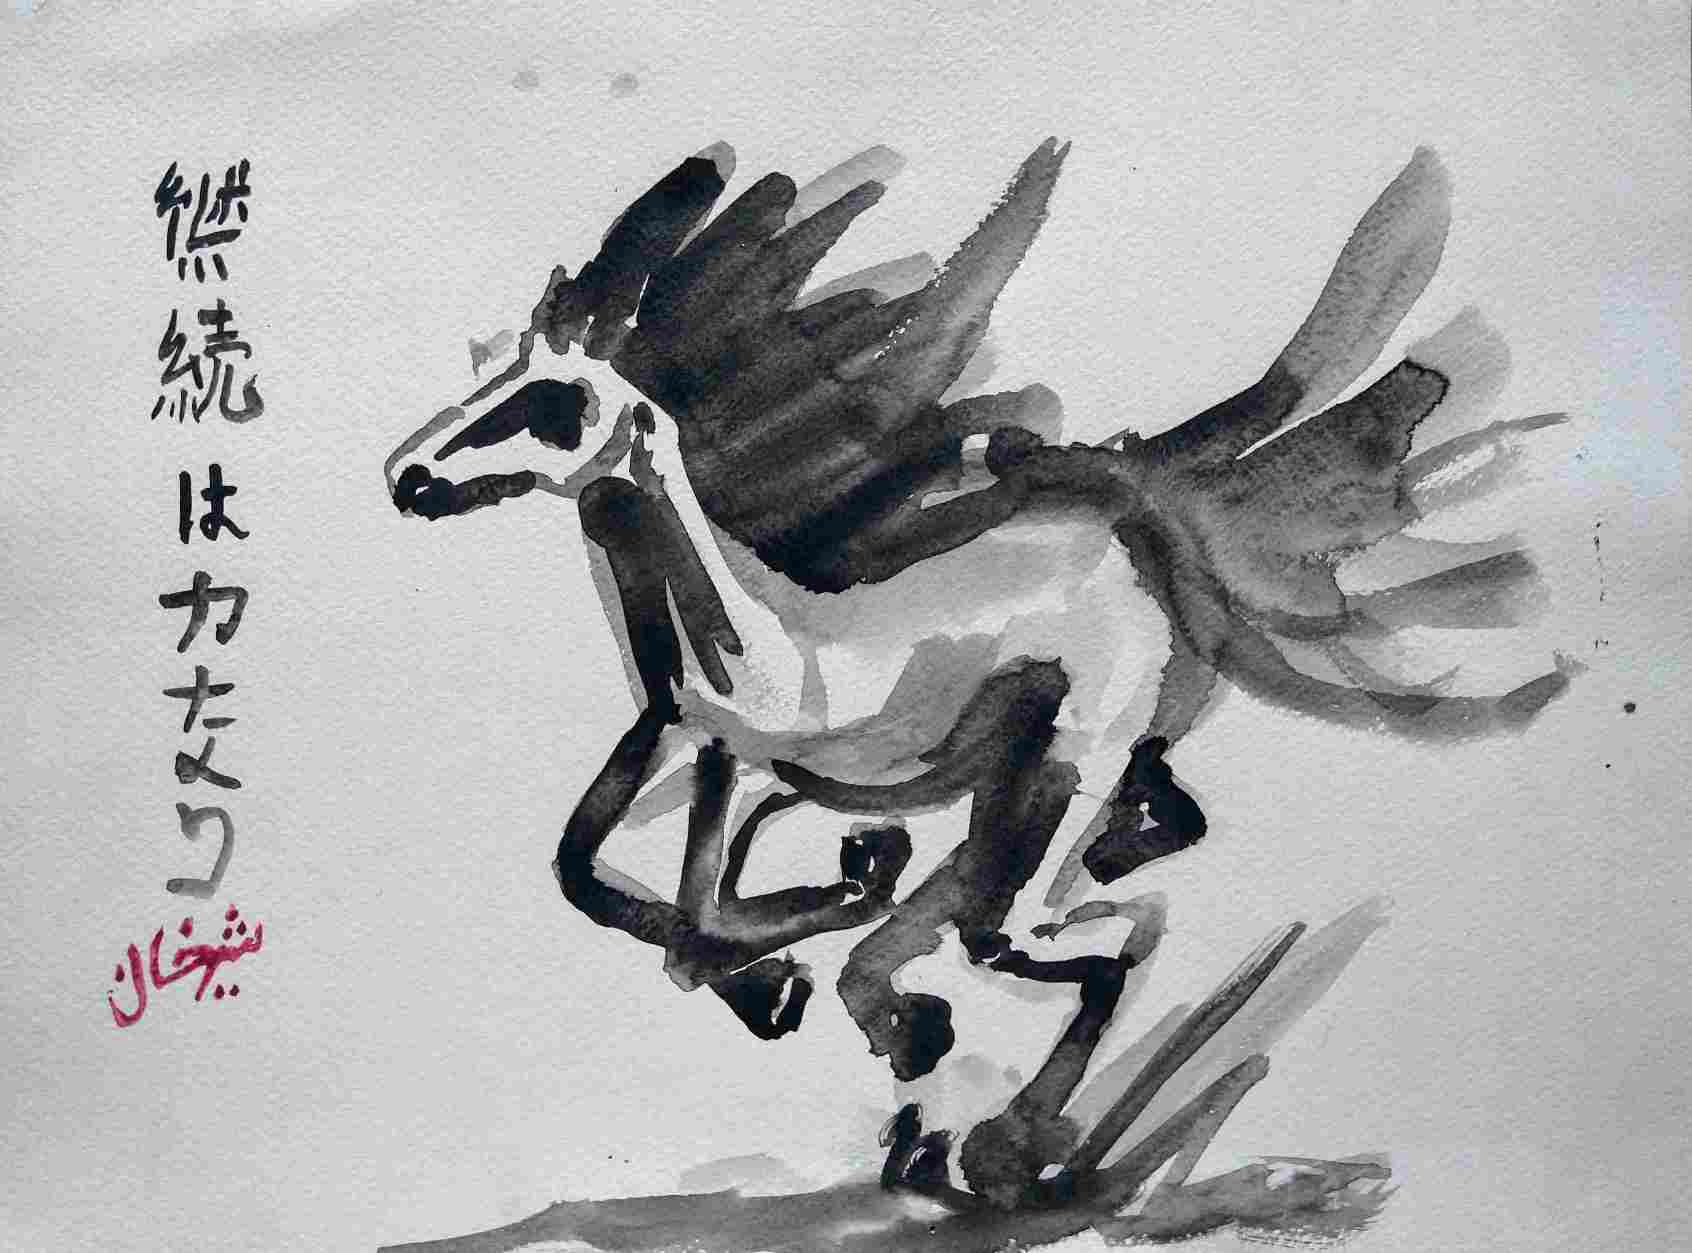 継続は力なり
شیرخان